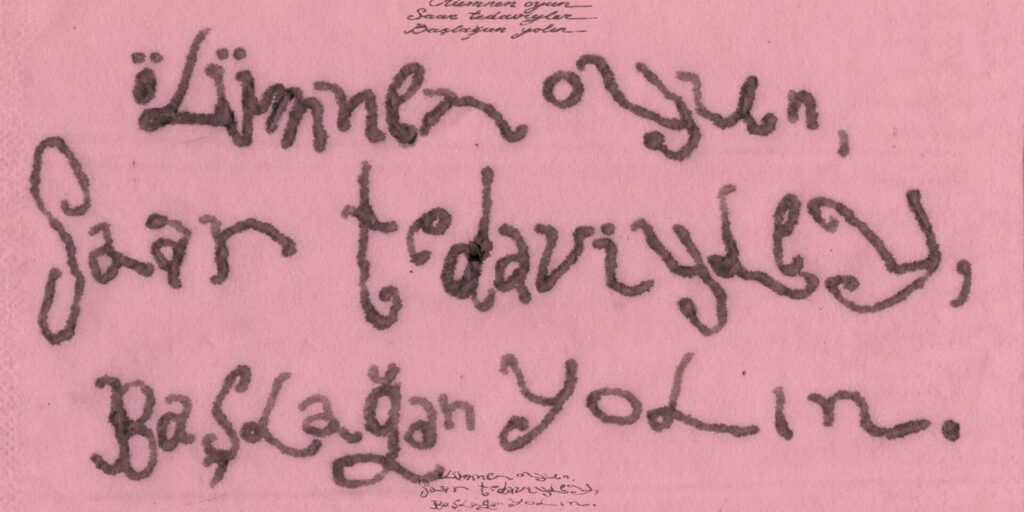 Ölümnen oyun
Saar tedaviyley
Başlağan yolın
ölümnen oyun,
Saar tedaviyley,
Başlağan yolın.
ölümnen oyun,
Saar tedaviyley,
Başlağan yolın.